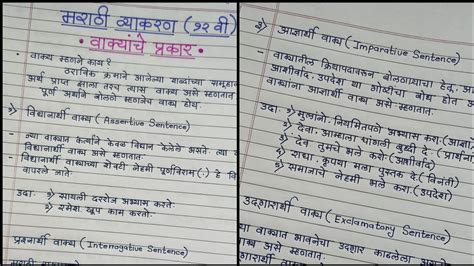 मराठी व्याकरण (१२ वी)
• वाक्यांचे प्रकार •
• वाक्य म्हणजे काय?
ठराविक क्रमाने आलेल्या शब्दांच्या समूहाला
अर्थ प्राप्त झाला तरच त्यास वाक्य असे म्हणतात
पूर्ण अर्थाने बोलणे म्हणजेच वाक्य होय.
१) विधानार्थी वाक्य (Assertive Sentence)
- ज्या वाक्यात कर्त्याने केवळ विधान केलेले असते. त्या
विधानार्थी वाक्य असे म्हणतात.
- विधानार्थी वाक्याच्या शेवटी नेहमी पूर्णविराम (.) हे
वापरले जाते.
उदा: १) सायली दररोज अभ्यास करते.
२) रमेश खूप काम करतो.
प्रश्नार्थी वाक्य (Interrogative Sentence)
३) आज्ञार्थी वाक्य (Imparative Sentence)
- वाक्यातील क्रियापदावरून बोलणाऱ्याचा हेतू,
आशीर्वाद, उपदेश या गोष्टींचा बोध होत
वाक्यांना आज्ञार्थी वाक्य असे म्हणतात.
उदा: १) मुलांनो, नियमितपणे अभ्यास करा. (आज्ञा)
२) देवा, आम्हाला चांगली बुद्धी दे. (प्रार्थना)
३) देव तुमचे भले करो. (आशीर्वाद)
४) राधा, कृपया मला पुस्तक दे. (विनंती)
५) समाजाचे नेहमी भले करा. (उपदेश)
उद्गारार्थी वाक्य (Exclamatory Sentence)
ज्या वाक्यात भावनेचा उद्गार काढलेला
उद्गारार्थी वाक्य असे म्हणतात.